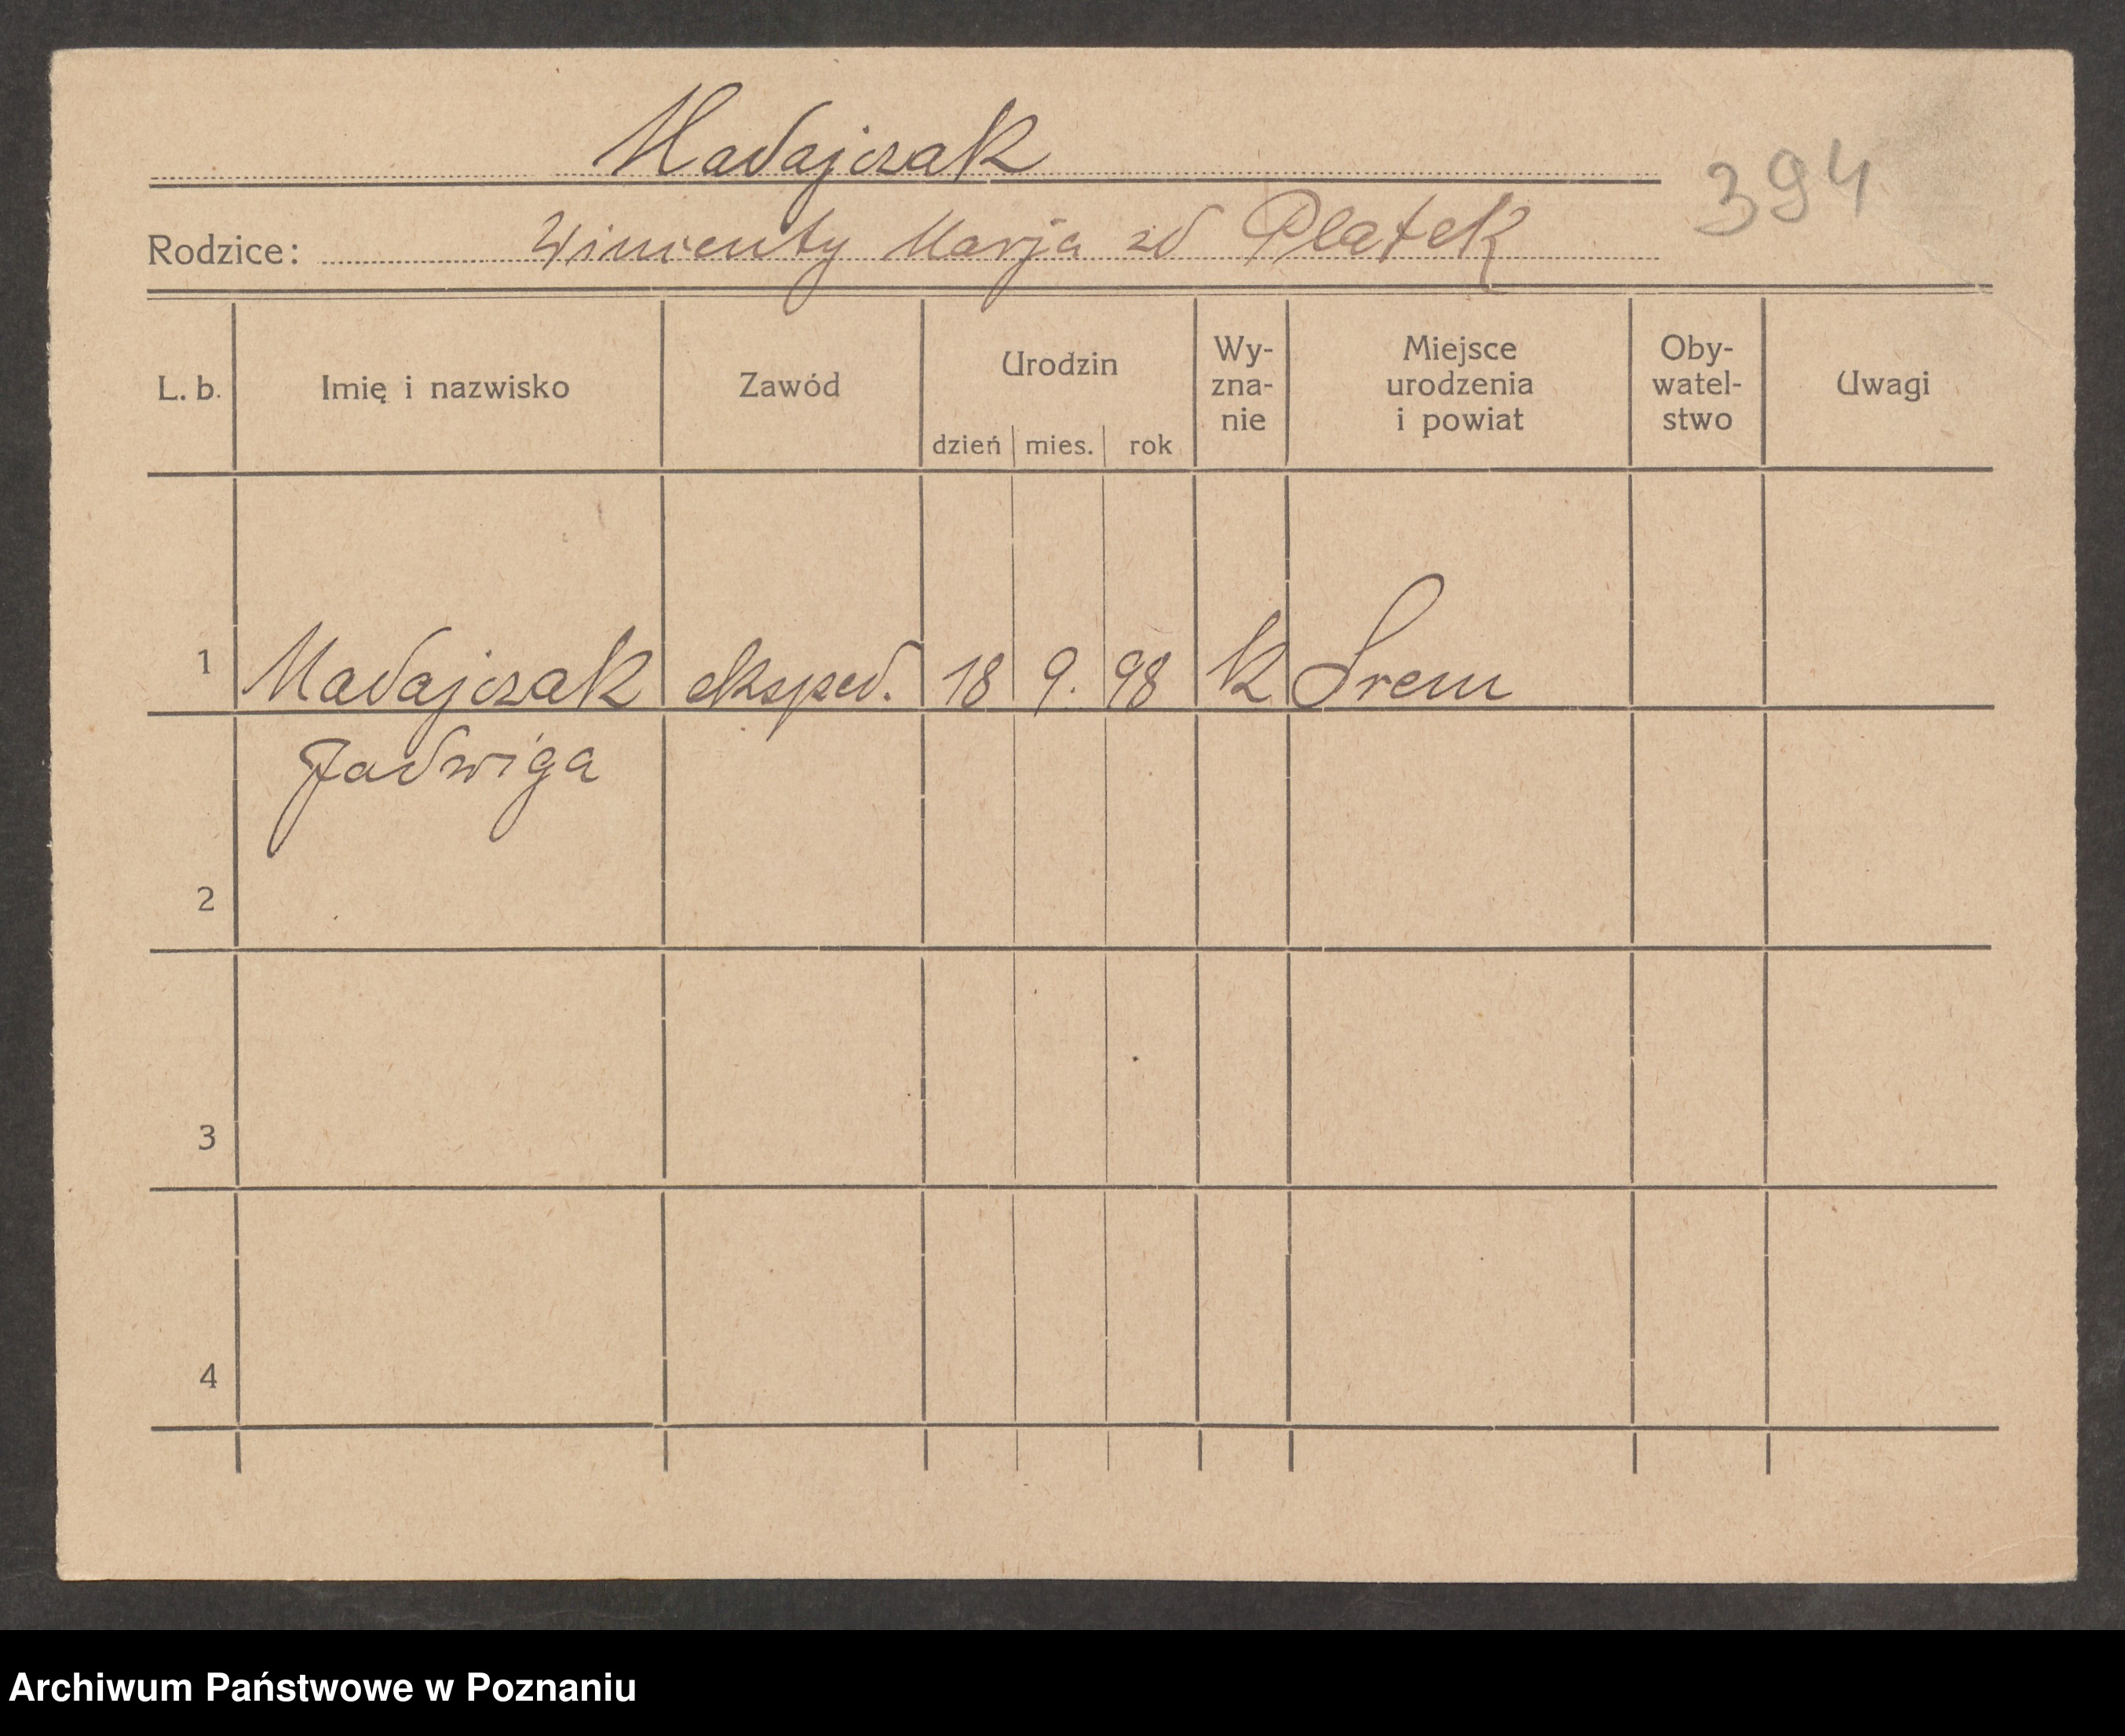 Madajczak
394
Rodzice: Wincenty Marja zd Platek
L. b. Imię i nazwisko Zawód Urodzin dzień mies. rok Wy-zna-nie Miejsce urodzenia i powiat Oby-watel-stwo Uwagi
1 Madajczak eksped. 18 9. 98 k Śrem
Jadwiga
2
3
4
Archiwum Państwowe w Poznaniu